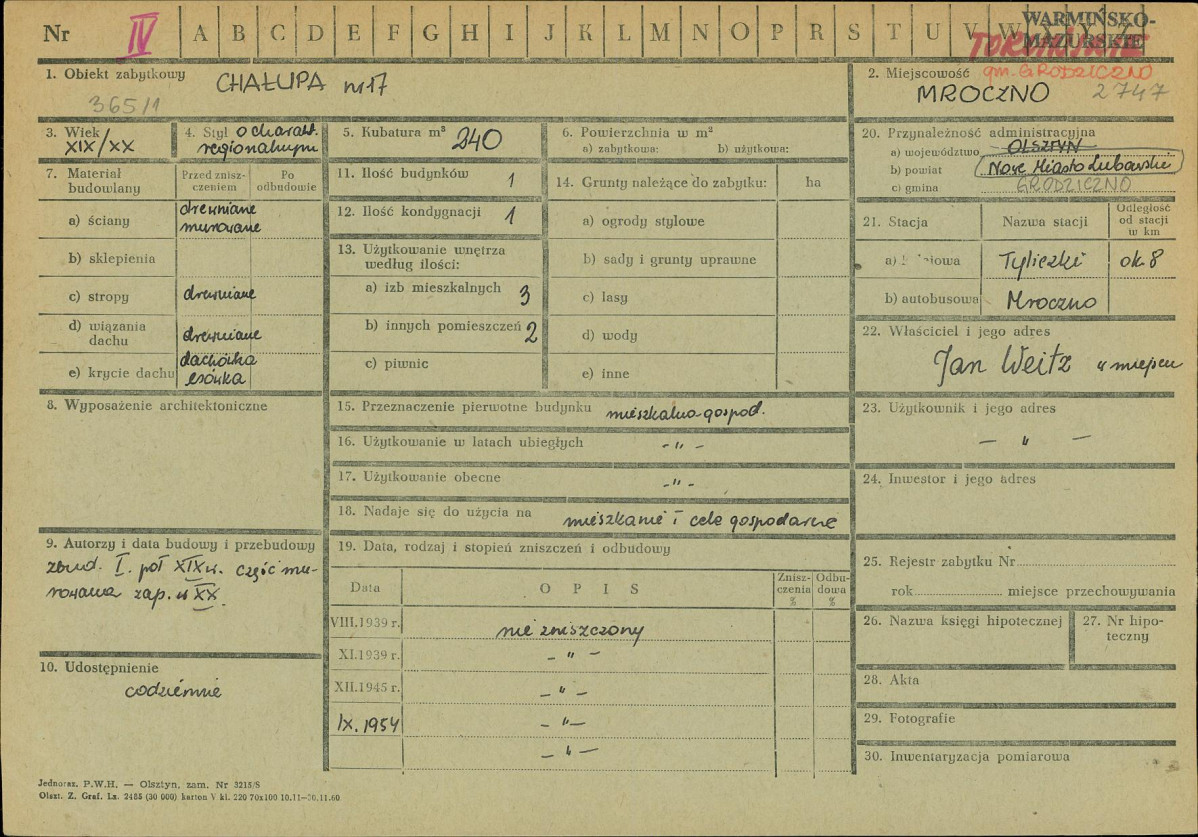 Nr IV A B C D E F G H I J K L M N O P R S T U V W X Y Z
WARMIŃSKO-
MAZURSKIE
TORUŃSKIE
1. Obiekt zabytkowy
CHAŁUPA nr 17
365/1
2. Miejscowość gm. GRODZICZNO
MROCZNO 2747
3. Wiek
XIX/XX
4. Styl o charakt.
regionalnym
5. Kubatura m³ 240
6. Powierzchnia w m²
a) zabytkowa: b) użytkowa:
7. Materiał
budowlany
Przed znisz-
czeniem
Po
odbudowie
a) ściany drewniane
murowane
b) sklepienia
c) stropy drewniane
d) wiązania
dachu drewniane
e) krycie dachu dachówka
esówka
8. Wyposażenie architektoniczne
9. Autorzy i data budowy i przebudowy
zbud. I. poł XIX w. część mu-
rowana zap. w XX.
10. Udostępnienie
codziennie
11. Ilość budynków 1
12. Ilość kondygnacji 1
13. Użytkowanie wnętrza
według ilości:
a) izb mieszkalnych 3
b) innych pomieszczeń 2
c) piwnic
14. Grunty należące do zabytku: ha
a) ogrody stylowe
b) sady i grunty uprawne
c) lasy
d) wody
e) inne
15. Przeznaczenie pierwotne budynku mieszkalno-gospod.
16. Użytkowanie w latach ubiegłych - " -
17. Użytkowanie obecne - " -
18. Nadaje się do użycia na mieszkanie i cele gospodarcze
19. Data, rodzaj i stopień zniszczeń i odbudowy
Data OPIS Znisz-
czenia
% Odbu-
dowa
%
VIII.1939 r. nie zniszczony
XI.1939 r. - " -
XII.1945 r. - " -
IX. 1954 - " -
- " -
20. Przynależność administracyjna
a) województwo OLSZTYN
b) powiat Nowe Miasto Lubawskie
c) gmina GRODZICZNO
21. Stacja Nazwa stacji Odległość
od stacji
w km
a) Tyliczki ok. 8
b) autobusowa Mroczno
22. Właściciel i jego adres
Jan Weitz w miejscu
23. Użytkownik i jego adres
- " -
24. Inwestor i jego adres
25. Rejestr zabytku Nr
rok miejsce przechowywania
26. Nazwa księgi hipotecznej
27. Nr hipo-
teczny
28. Akta
29. Fotografie
30. Inwentaryzacja pomiarowa
Jednoraz. P.W.H. — Olsztyn, zam. Nr 3215/S
Olszt. Z. Graf. Lz. 2485 (30 000) karton V kl. 220 70x100 10.11—30.11.60